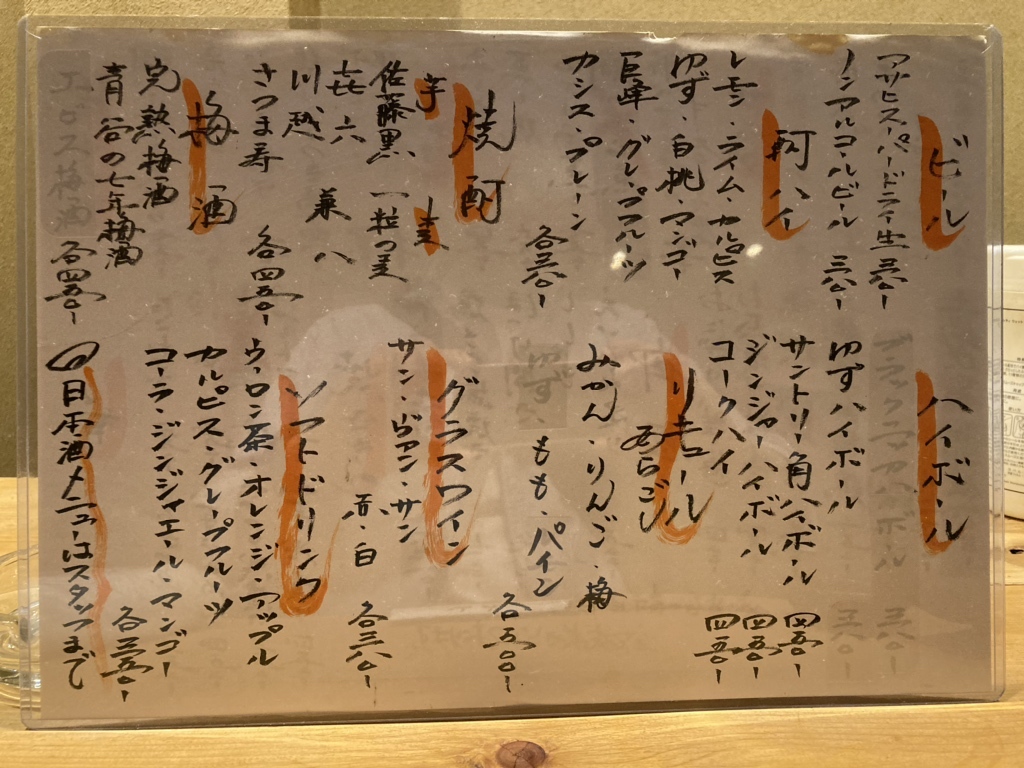 ビール
アサヒスーパードライ生 三八〇-
ノンアルコールビール 三八〇-
酎ハイ
レモン・ライム・カルピス
ゆず・白桃・マンゴー
巨峰・グレープフルーツ
カシス・プレーン
各三八〇-
焼酎
芋 麦
佐藤黒 一粒の麦
㐂六
川越 兼八
さつま寿
各四五〇-
梅酒
完熟梅酒
青谷の七年梅酒
エロス梅酒
各四五〇-
ハイボール
ブラックニッカハイボール 三八〇-
ゆずハイボール 三八〇-
サントリー角ハイボール 四五〇-
ジンジャーハイボール 四五〇-
コークハイ 四五〇-
リキュール
あらごし
みかん・りんご・梅
ゆず・もも・パイン
各五〇〇-
グラスワイン
サン・ヴァン・サン
赤・白
各三八〇-
ソフトドリンク
ウーロン茶・オレンジ・アップル
カルピス・グレープフルーツ
コーラ・ジンジャエール・マンゴー
各三五〇-
◎日本酒メニューはスタッフまで